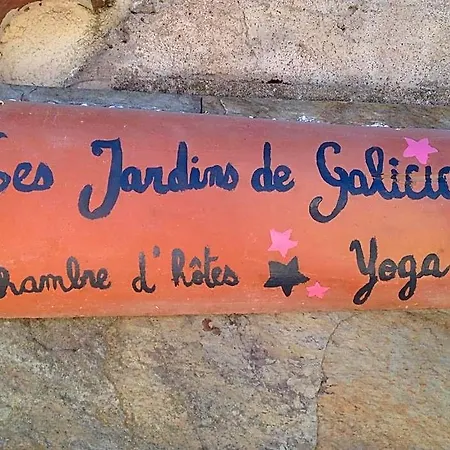 Les Jardins de Galicia
Chambre d'hôtes Yoga